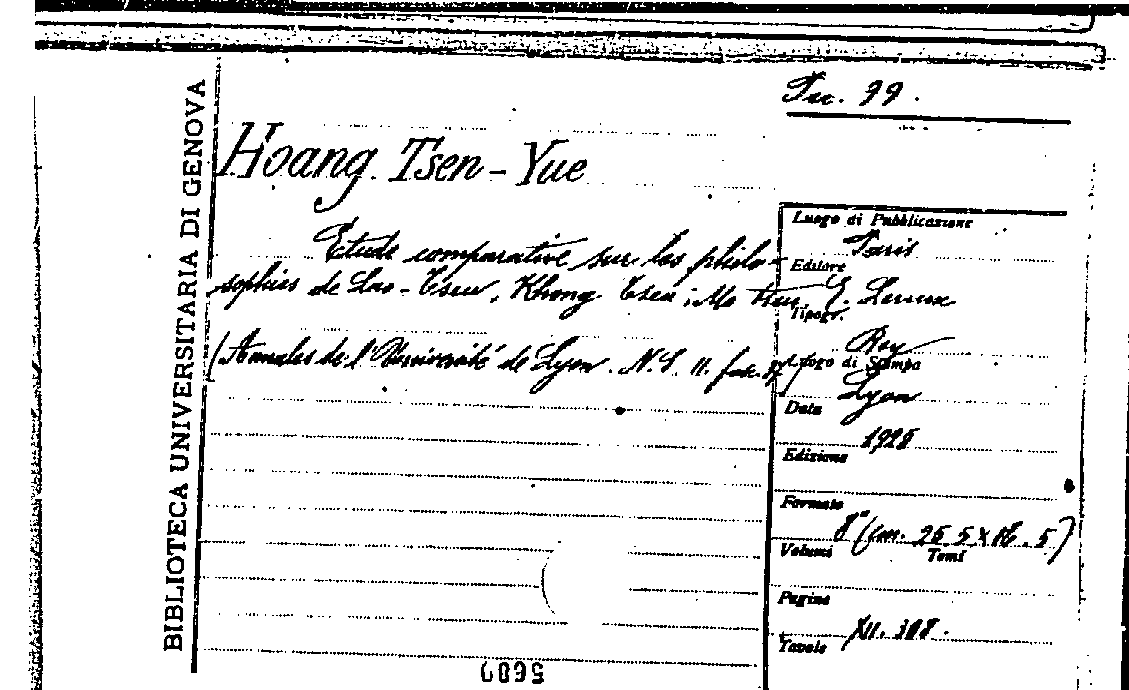 Fac. 99.
BIBLIOTECA UNIVERSITARIA DI GENOVA
Hoang Tsen-Yue
Etude comparative sur les philo-
sophies de Lao-Tseu, Khong Tseu, Mo Tseu
(Annales de l'Université de Lyon. N.S. II. fasc. 37)
Luogo di Pubblicazione
Paris
Editore
E. Leroux
Tipogr.
Rey
Luogo di Stampa
Lyon
Data
1925
Edizione
Formato
8° (cm. 25.5 x 16.5)
Volumi
Tomi
Pagine
XII. 308.
Tavole
5680